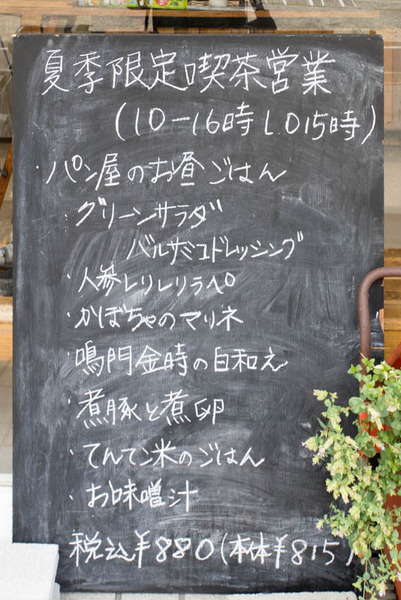 夏季限定喫茶営業
(10-16時 L.O15時)
・パン屋のお昼ごはん
・グリーンサラダ
バルサミコドレッシング
・人参しりしりラペ
・かぼちゃのマリネ
・鳴門金時の白和え
・煮豚と煮卵
・てんてこ米のごはん
・お味噌汁
税込¥880(本体¥815)